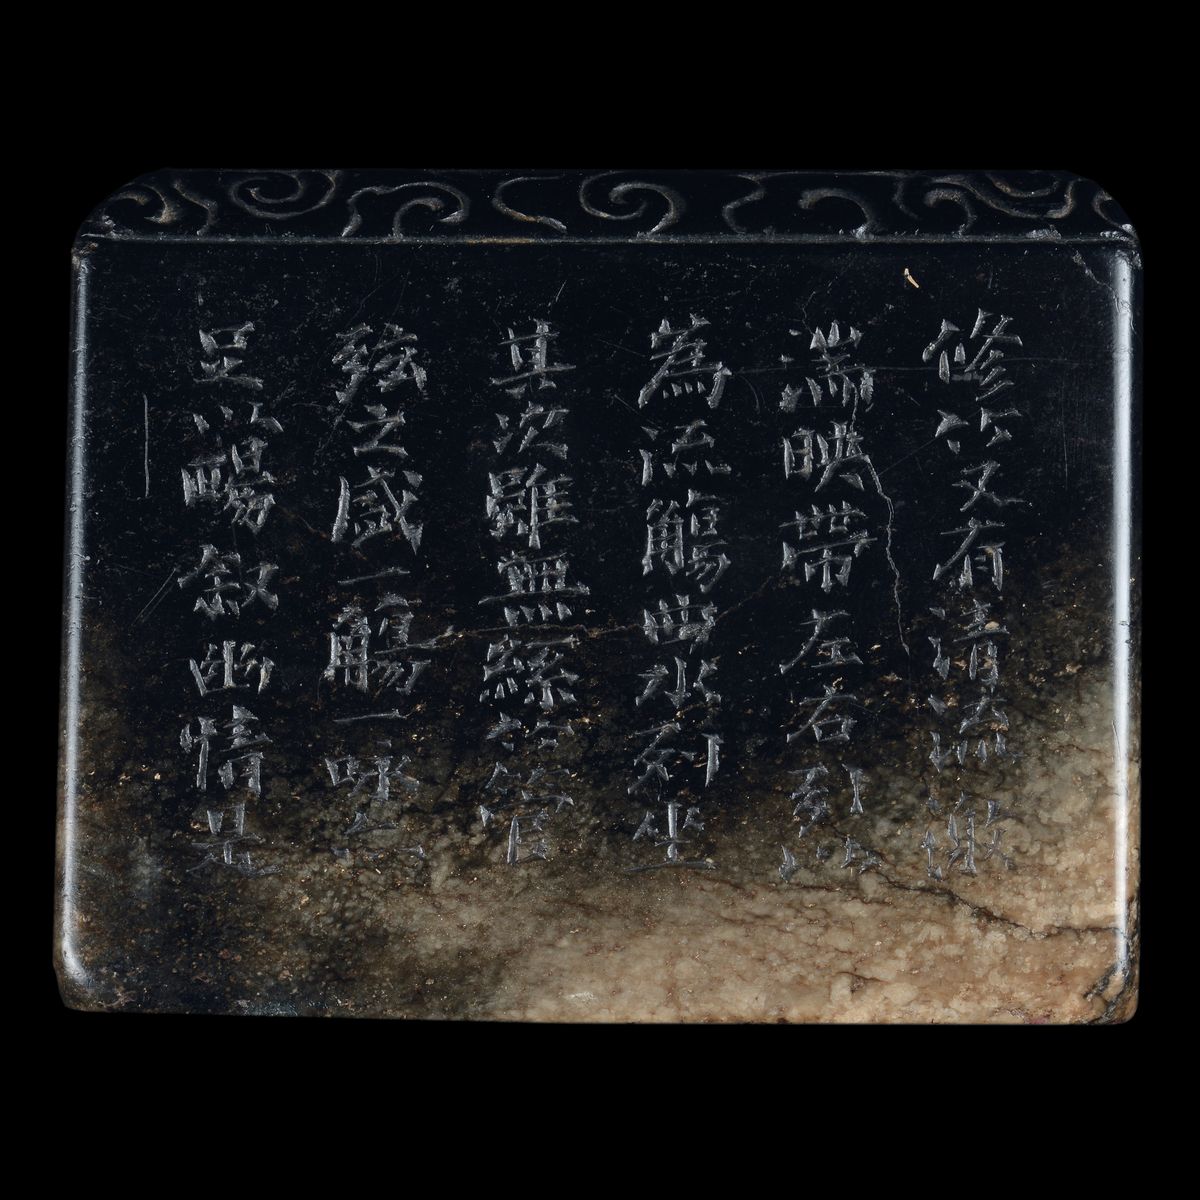 修竹又有清流激
湍映帶左右引以
為流觴曲水列坐
其次雖無絲竹管
弦之盛一觴一詠亦
足以暢敘幽情是